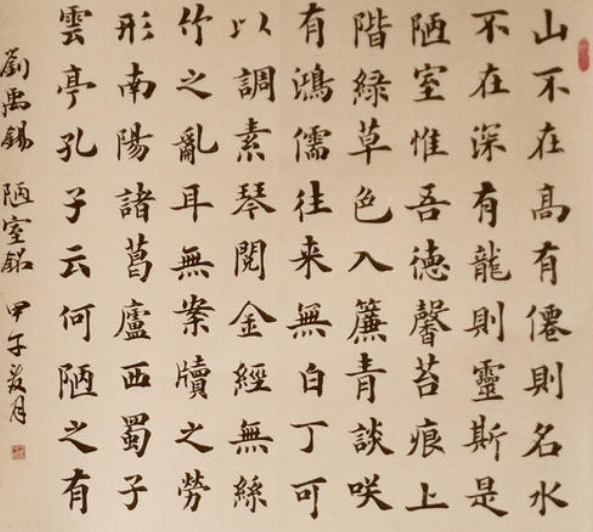 山不在高有僊則名水
不在深有龍則靈斯是
陋室惟吾德馨苔痕上
階緑草色入簾青談咲
有鴻儒往来無白丁可
以調素琴閱金經無絲
竹之亂耳無案牘之勞
形南陽諸葛廬西蜀子
雲亭孔子云何陋之有
劉禹錫 陋室銘 甲午 月